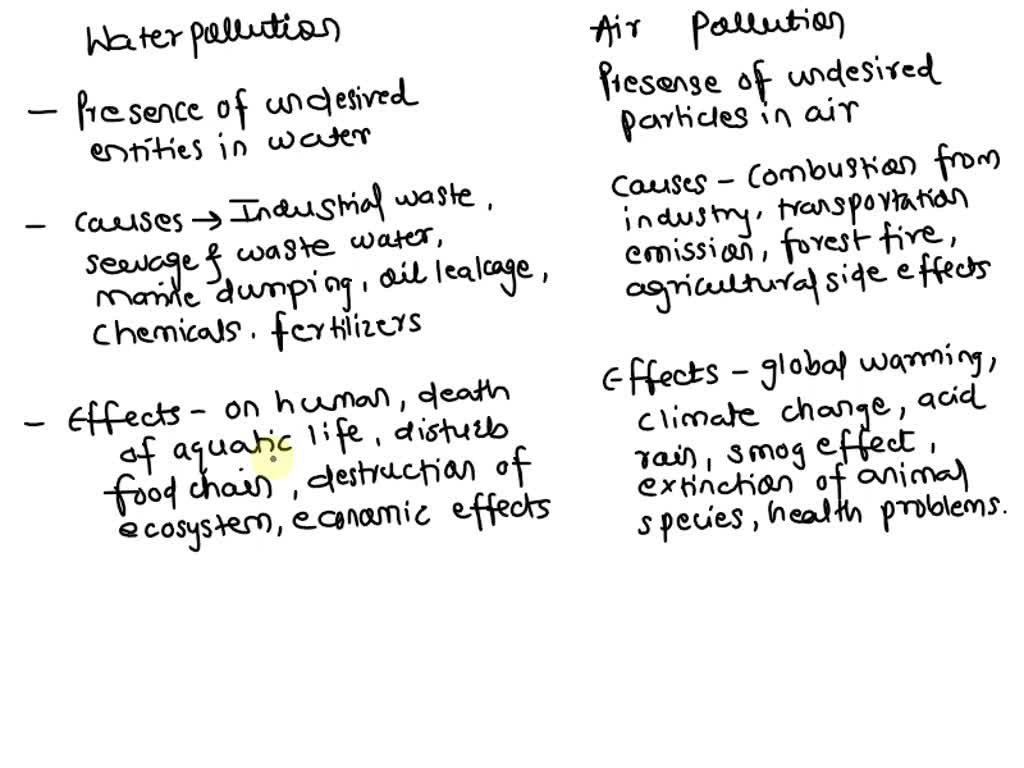 Water pollution
- Presence of undesired
entities in water
- Causes → Industrial waste,
seewage & waste water,
marine dumping, oil leakage,
chemicals. fertilizers
- Effects - on human, death
of aquatic life, disturb
food chain, destruction of
ecosystem, economic effects
Air Pollution
Presense of undesired
particles in air
Causes - Combustion from
industry, transportation
emission, forest fire,
agricultural side effects
Effects - global warming,
climate change, acid
rain, smog effect,
extinction of animal
species, health problems.